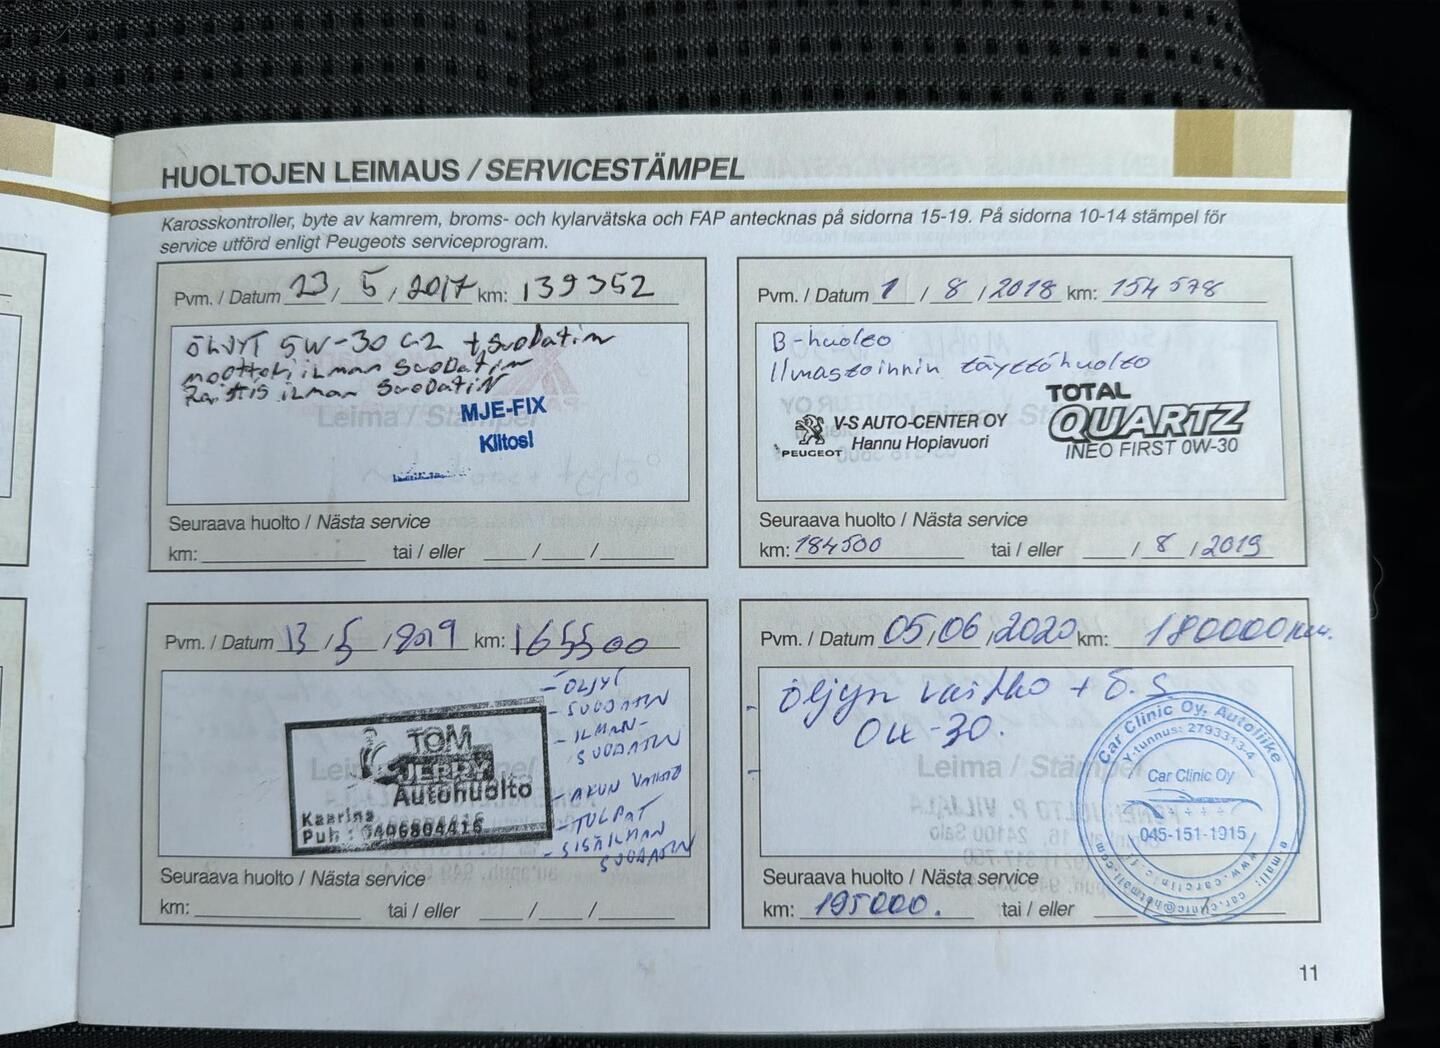 HUOLTOJEN LEIMAUS / SERVICESTÄMPEL
Karosskontroller, byte av kamrem, broms- och kylarvätska och FAP antecknas på sidorna 15-19. På sidorna 10-14 stämpel för
service utförd enligt Peugeots serviceprogram.
Pvm. / Datum 23 / 5 / 2017 km: 139352
ÖLJYT 5W-30 C2 + SuoDatin
moottori ilman SuoDatin
Raitis ilman SuoDatin
Leima / Stämpel
MJE-FIX
Kiitos!
Seuraava huolto / Nästa service
km: tai / eller / /
Pvm. / Datum 1 / 8 / 2018 km: 154 578
B-huolto
Ilmastoinnin täyttöhuolto
TOTAL
QUARTZ
INEO FIRST 0W-30
PEUGEOT
V-S AUTO-CENTER OY
Hannu Hopiavuori
Seuraava huolto / Nästa service
km: 184500 tai / eller / 8 / 2019
Pvm. / Datum 13 / 5 / 2019 km: 165500
- ÖLJYT
- SUODATIN
- ILMAN-
SUODATIN
- AKUN VAIHTO
- TULPAT
- SISÄILMAN
SUODATIN
TOM
JERRY
Autohuolto
Kaarina
Puh : 0406804416
Seuraava huolto / Nästa service
km: tai / eller / /
Pvm. / Datum 05 / 06 / 2020 km: 180000 km.
- öljyn vaihto + ö.s
0W-30.
Leima / Stämpel
Car Clinic Oy, Autoliike
Y-tunnus: 2793313-4
Car Clinic Oy
045-151-1915
e-mail: car.clinic@hotmail.com
Seuraava huolto / Nästa service
km: 195000. tai / eller / /
11